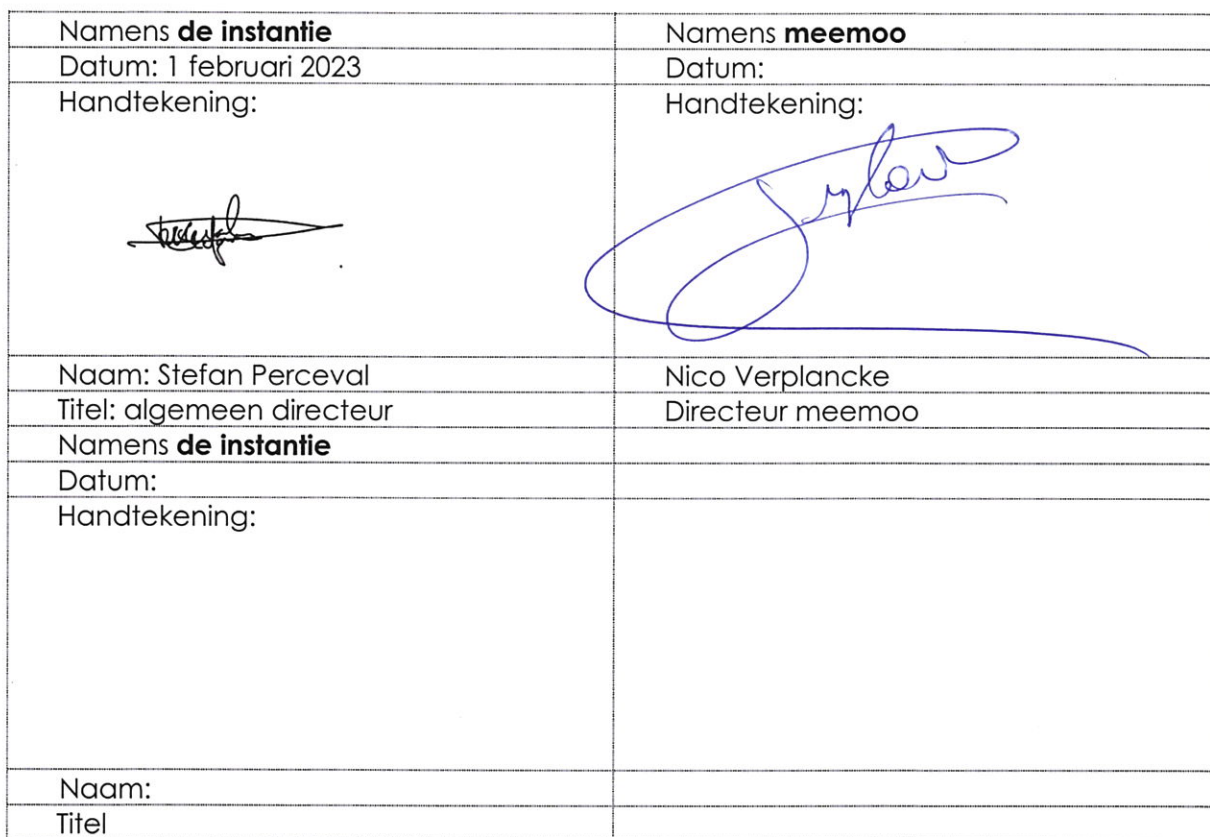 Namens de instantie
Namens meemoo
Datum: 1 februari 2023
Datum:
Handtekening:
Handtekening:
Naam: Stefan Perceval
Nico Verplancke
Titel: algemeen directeur
Directeur meemoo
Namens de instantie
Datum:
Handtekening:
Naam:
Titel